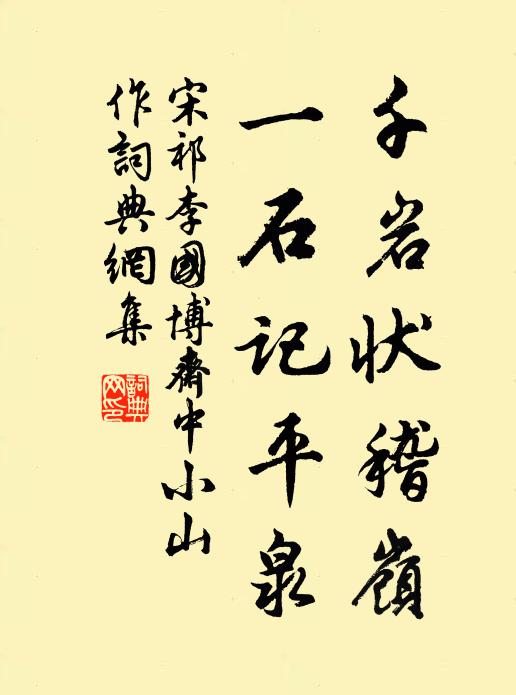 千岩状稽嶺
一石记平泉
宋祁李國博齋中小山
作詞典網集
詞典网印